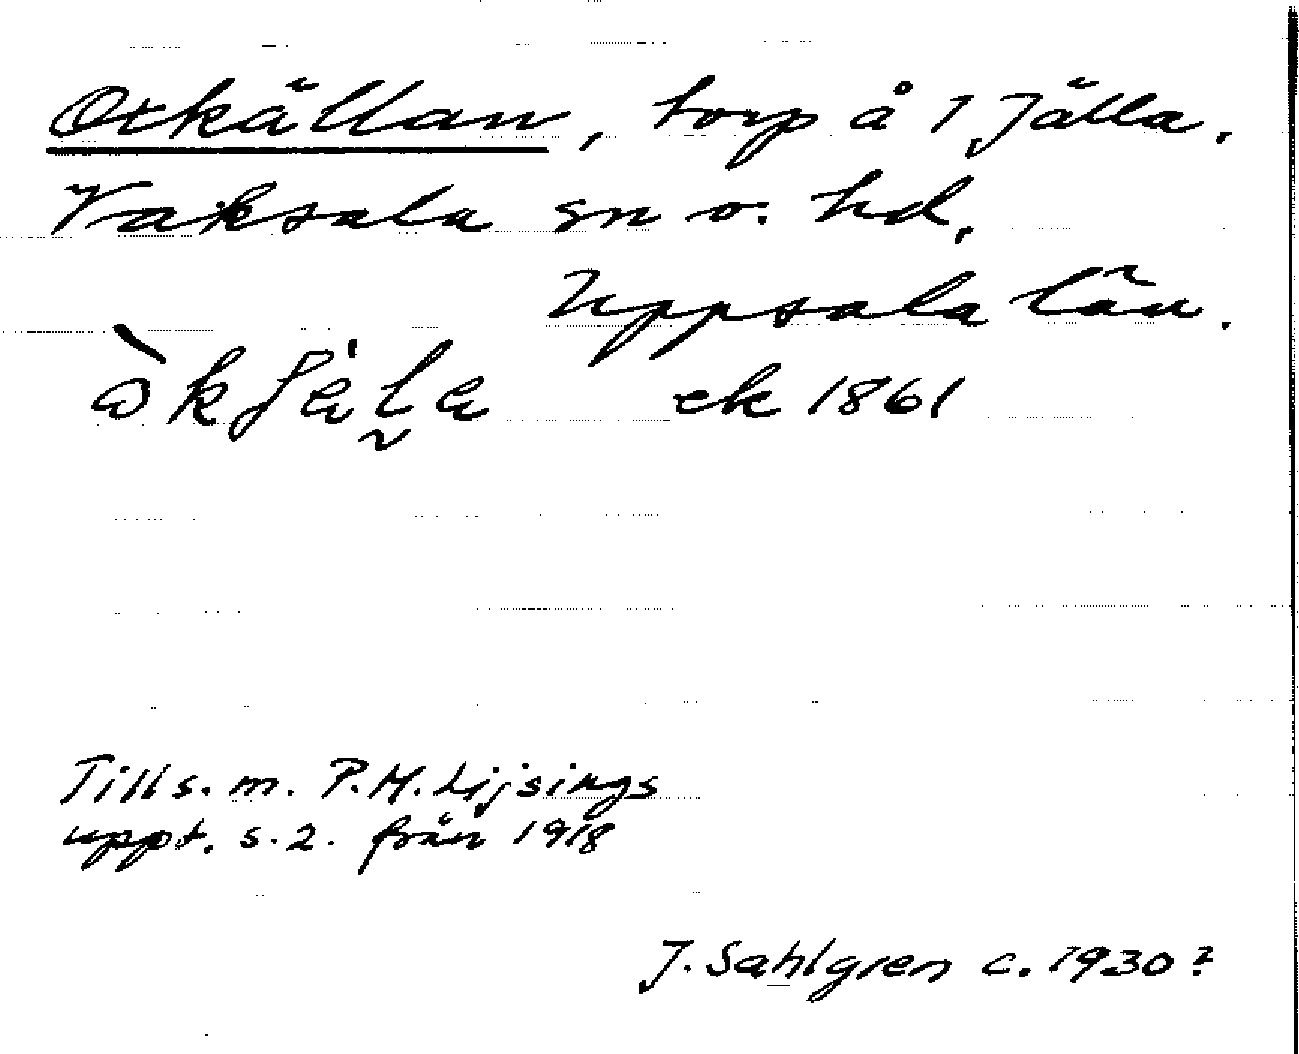 Otkällan, torp å 1 Jälla.
Vaksala sn o. hd,
Uppsala län.
ek 1861
Tills. m. P.M. Lijsings
uppt. s. 2. från 1918
J. Sahlgren c. 1930?